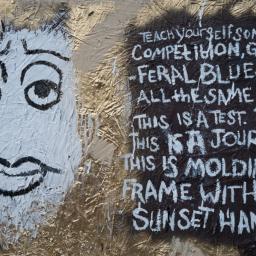 TEACH YOURSELF SON
COMPETITION, G
-FERAL BLUE
ALL THE SAME
THIS IS A TEST. T
THIS IS A JOUR
THIS IS MOLDI
FRAME WITH
SUNSET HAN